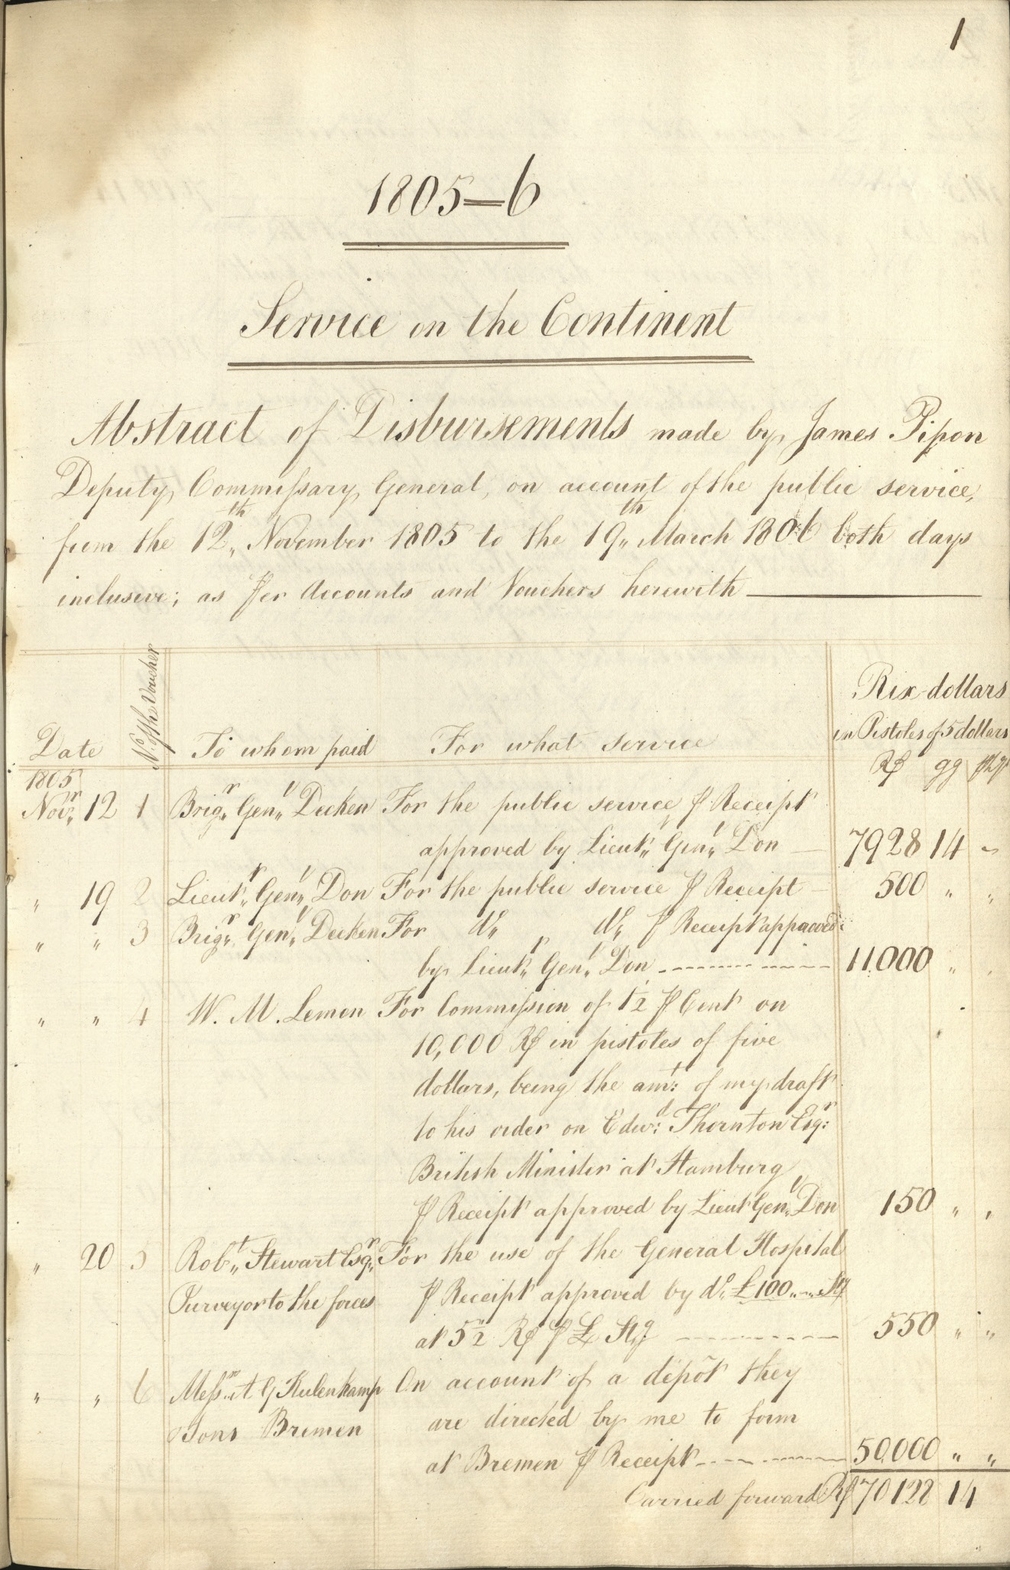 1
1805—6
Service on the Continent
Abstract of Disbursements made by James Pipon
Deputy Commissary General, on account of the public service,
from the 12th November 1805 to the 19th March 1806 both days
inclusive; as Per Accounts and Vouchers herewith
Rix dollars
in Pistoles of 5 dollars
Date No. of the Voucher To whom paid For what service R$ gg
1805
Novr 12 1 Brigr Genl Decken For the public service P Receipt
approved by Lieut Genl Don 7928 14 "
" 19 2 Lieut Genl Don For the public service P Receipt 500 " "
" " 3 Brigr Genl Decken For do do P Receipt approved
by Lieut Genl Don 11,000 " "
" " 4 W. M. Lemon For Commission of 1½ P Cent on
10,000 R$ in pistoles of five
dollars, being the amt: of my draft
to his order on Edwd: Thornton Esqr:
British Minister at Hamburg
P Receipt approved by Lieut Genl Don 150 " "
" 20 5 Robt Stewart Esqr For the use of the General Hospital
Purveyor to the forces P Receipt approved by do £100 " " Stg
at 5½ R$ P £ Stg 550 " "
" " 6 Messrs A G Kulenkamp On account of a depôt they
& Sons Bremen are directed by me to form
at Bremen P Receipt 50,000 " "
Carried forward R$ 70128 14